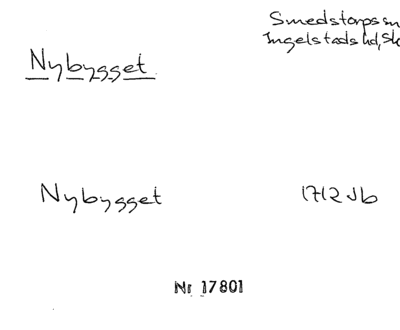 Smedstorps sn
Ingelstads hd, Sk
Nybygget
Nybygget 1712 Jb
Nr 17801